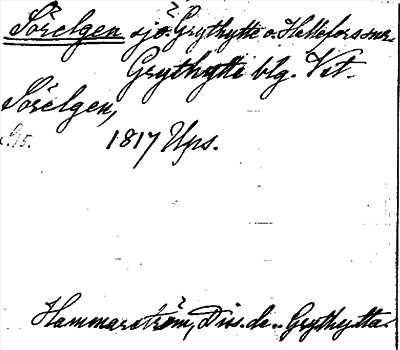 Sörelgen sjö. Grythytte o. Hellefors snr.
Grythytte blg. Vst.
Sörelgen,
1817 Ups.
Hammarström, Diss. de.. Grythytta.